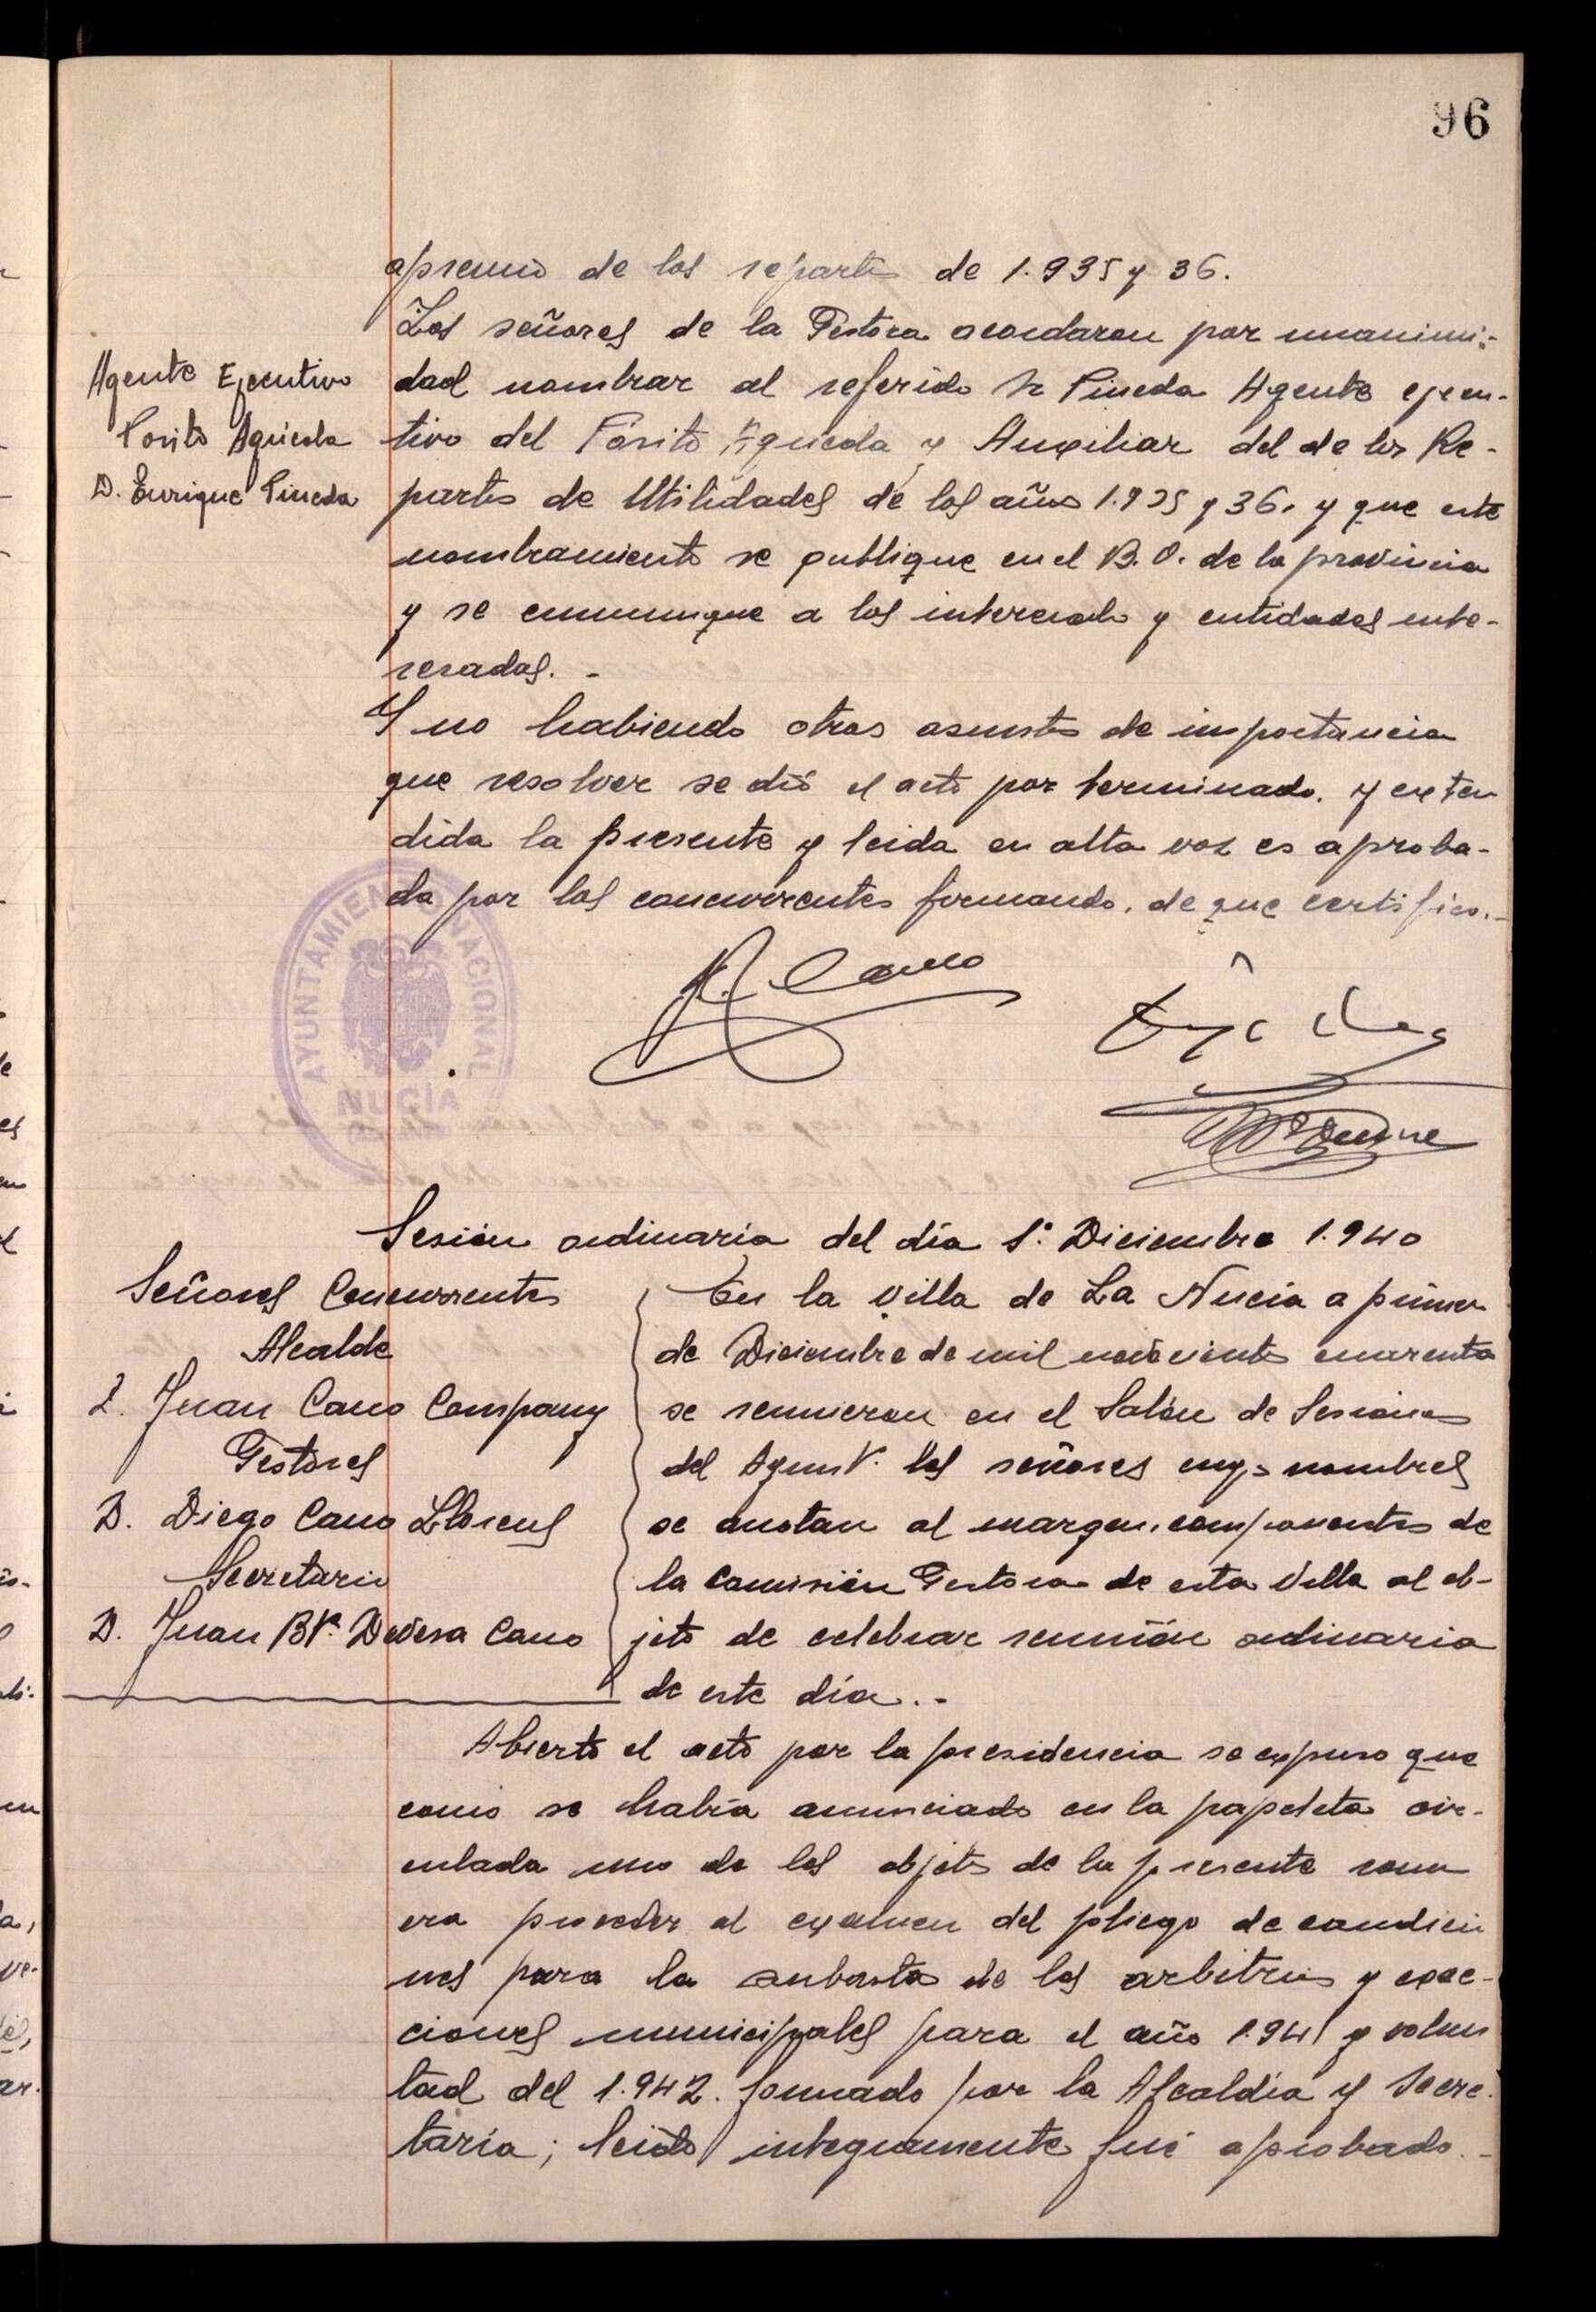 96
apremio de los repartos de 1.935 y 36.
Los señores de la Gestora acordaron por unanimi-
Agente Ejecutivo
Posito Agricola
D. Enrique Pineda
dad nombrar al referido Sr Pineda Agente ejecu-
tivo del Pósito Agricola y Auxiliar del de los Re-
partos de Utilidades de los años 1.935 y 36. y que este
nombramiento se publique en el B.O. de la provincia
y se comunique a los interesados y entidades inte-
resadas. -
Y no habiendo otros asuntos de importancia
que resolver se dió el acto por terminado. y exten
dida la presente y leida en alta voz es aproba-
da por los concurrentes firmando, de que certifico.-
AYUNTAMIENTO NACIONAL
NUCIA
J. Cano
Sesión ordinaria del día 1º Diciembre 1.940
Señores Concurrentes
Alcalde
D. Juan Cano Company
Gestores
D. Diego Cano Llorens
Secretario
D. Juan Btª. Devesa Cano
En la villa de La Nucia a primero
de Diciembre de mil novecientos cuarenta
se reunieron en el Salón de Sesiones
del Ayunt. los señores cuyos nombres
se anotan al margen, componentes de
la Comisión Gestora de esta Villa al ob-
jeto de celebrar reunión ordinaria
de este día..-
Abierto el acto por la presidencia se expuso que
como se había anunciado en la papeleta cir-
culada uno de los objetos de la presente
era proceder al examen del pliego de condicio
nes para la subasta de los arbitrios y exac-
ciones municipales para el año 1.941 y volun
tad del 1.942. formado por la Alcaldía y Secre-
taría; leido integramente fué aprobado.-